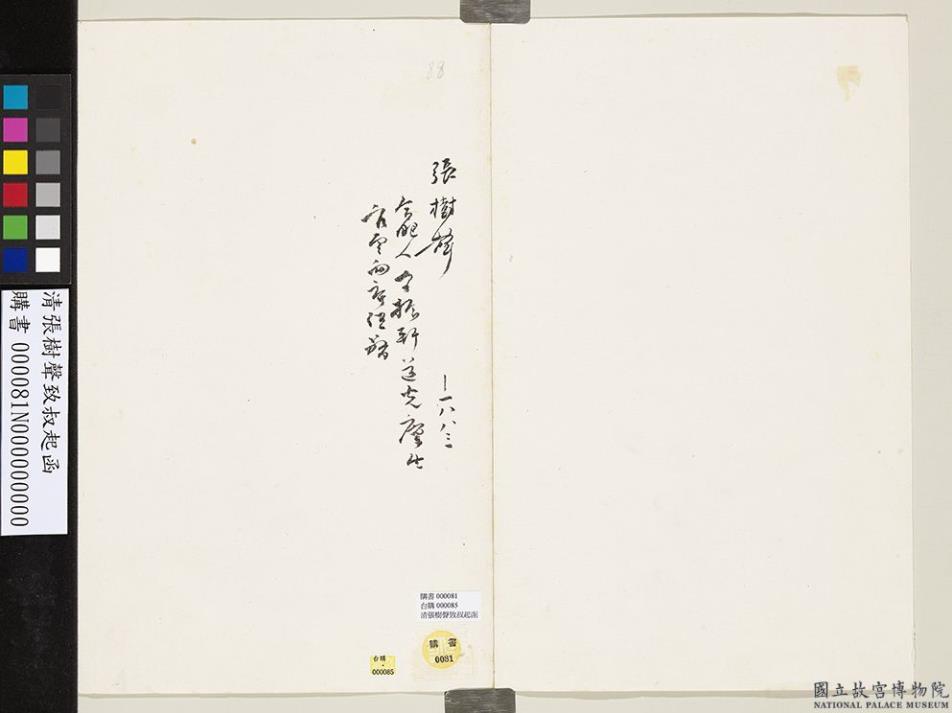 88
張樹聲 —一八八三
合肥人 字振軒 道光廩生
官至兩廣總督
清張樹聲致叔起函
購書 000081N000000000
購書 000081
台購 000085
清張樹聲致叔起函
購書
0081
台購
-
000085
國立故宮博物院
NATIONAL PALACE MUSEUM